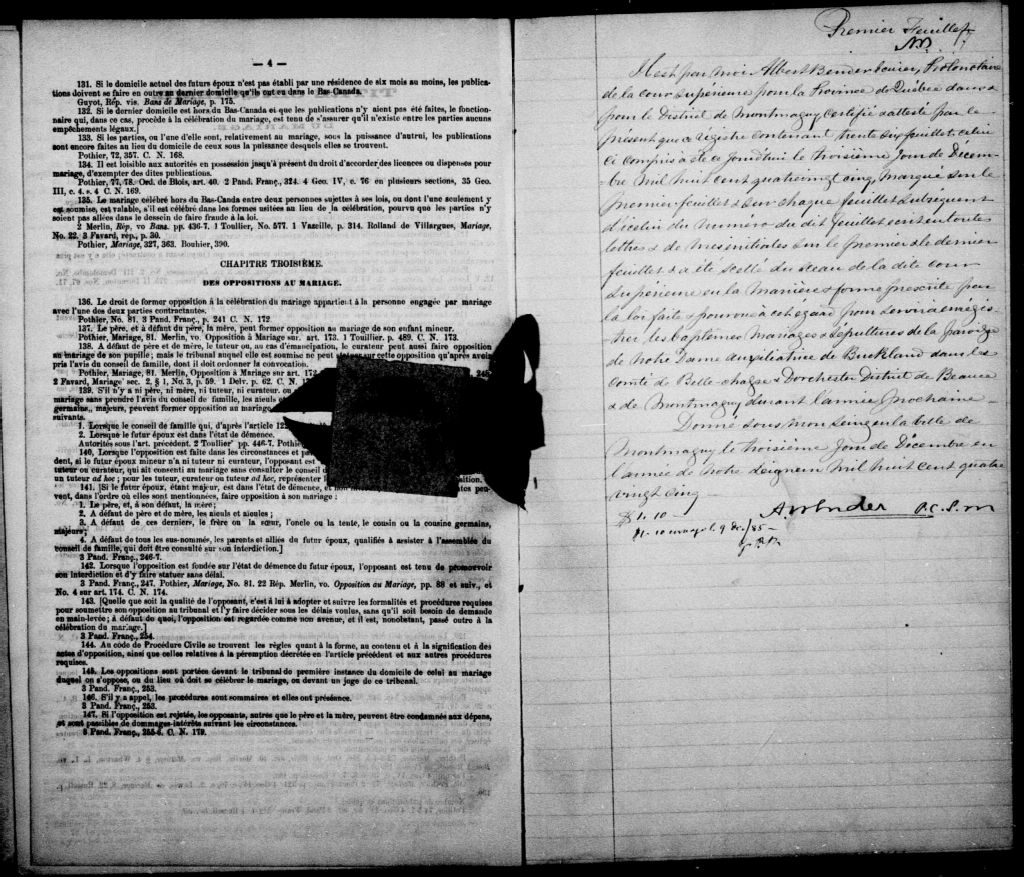 — 4 —
131. Si le domicile actuel des futurs époux n'est pas établi par une résidence de six mois au moins, les publica-
tions doivent se faire en outre au dernier domicile qu'ils ont eu dans le Bas-Canada.
Guyot, Rép. vis. Bans de Mariage, p. 175.
132. Si le dernier domicile est hors du Bas-Canada et que les publications n'y aient pas été faites, le fonction-
naire qui, dans ce cas, procède à la célébration du mariage, est tenu de s'assurer qu'il n'existe entre les parties aucuns
empêchements légaux.]
133. Si les parties, ou l'une d'elle sont, relativement au mariage, sous la puissance d'autrui, les publications
sont encore faites au lieu du domicile de ceux sous la puissance desquels elles se trouvent.
Pothier, 72, 357. C. N. 168.
134. Il est loisible aux autorités en possession jusqu'à présent du droit d'accorder des licences ou dispenses pour
mariage, d'exempter des dites publications.
Pothier, 77, 78. Ord. de Blois, art. 40. 2 Pand. Franç., 324. 4 Geo. IV, c. 76 en plusieurs sections, 35 Geo.
III, c. 4. s. 4 C. N. 169.
135. Le mariage célébré hors du Bas-Canda entre deux personnes sujettes à ses lois, ou dont l'une seulement y
est soumise, est valable, s'il est célébré dans les formes usitées au lieu de la célébration, pourvu que les parties n'y
soient pas allées dans le dessein de faire fraude à la loi.
2 Merlin, Rép, vo Bans. pp. 436-7. 1 Toullier, No. 577. 1 Vazeille, p. 314. Rolland de Villargues, Mariage,
No. 22. 3 Favard, rép., p. 30.
Pothier, Mariage, 327, 363. Bouhier, 390.
CHAPITRE TROISIÈME.
DES OPPOSITIONS AU MARIAGE.
136. Le droit de former opposition à la célébration du mariage appartient à la personne engagée par mariage
avec l'une des deux parties contractantes.
Pothier, No. 81. 3 Pand. Franç., p. 241 C. N. 172.
137. Le père, et à défaut du père, la mère, peut former opposition au mariage de son enfant mineur.
Pothier, Mariage, 81. Merlin, vo. Opposition à Mariage sur. art. 173. 1 Toullier p. 489. C. N. 173.
138. A défaut de père et de mère, le tuteur ou, au cas d'émancipation, le curateur peut aussi faire opposition
au mariage de son pupille; mais le tribunal auquel elle est soumise ne peut statuer sur cette opposition qu'après avoir
pris l'avis du conseil de famille, dont il doit ordonner la convocation.
Pothier, Mariage, 81. Merlin, Opposition à Mariage sur art. 17
2 Favard, Mariage sec. 2, § 1, No. 3, p. 59. 1 Delv. p. 62. C. N. 1
139. S'il n'y a ni père, ni mère, ni tuteur, ni curateur, ou
mariage sans prendre l'avis du conseil de famille, les aieuls e
germains, majeurs, peuvent former opposition au mariage
suivants.
1. Lorsque le conseil de famille qui, d'après l'article 122
2. Lorsque le futur époux est dans l'état de démence.
Autorités sous l'art. précédent. 2 Toullier pp. 446-7. Pothie
140. Lorsque l'opposition est faite dans les circonstances et pa
dent, si le futur époux mineur n'a ni tuteur ni curateur, l'opposant est
tuteur ou curateur, qui ait consenti au mariage sans consulter le conseil d
un tuteur ad hoc; pour les tuteur, curateur ou tuteur ad hoc, représenter l position.
141. [Si le futur époux, étant majeur, est dans l'état de démence, et non
vent, dans l'ordre où elles sont mentionnées, faire opposition à son mariage:
1. Le père, et, à son défaut, la mère;
2. A défaut de père et de mère, les aieuls et aieules;
3. A défaut de ces derniers, le frère ou la sœur, l'oncle ou la tente, le cousin ou la cousine germains,
majeurs;
4. A défaut de tous les sus-nommés, les parents et alliés du futur époux, qualifiés à assister à l'assemblée du
conseil de famille, qui doit être consulté sur son interdiction.]
3 Pand. Franç., 246-7.
142. Lorsque l'opposition est fondée sur l'état de démence du futur époux, l'opposant est tenu de promouvoir
son interdiction et d'y faire statuer sans délai.
3 Pand. Franç., 247. Pothier, Mariage, No. 81. 22 Rép. Merlin, vo. Opposition au Mariage, pp. 88 et suiv., et
No. 4 sur art. 174. C. N. 174.
143. [Quelle que soit la qualité de l'opposant, c'est à lui à adopter et suivre les formalités et procédures requises
pour soumettre son opposition au tribunal et l'y faire décider sous les délais voulus, sans qu'il soit besoin de demande
en main-levée; à défaut de quoi, l'opposition est regardée comme non avenue, et il est, nonobstant, passé outre à la
célébration du mariage.]
3 Pand. Franç., 254.
144. Au code de Procédure Civile se trouvent les règles quant à la forme, au contenu et à la signification des
actes d'opposition, ainsi que celles relatives à la péremption décrétée en l'article précédent et aux autres procédures
requises.
145. Les oppositions sont portées devant le tribunal de première instance du domicile de celui au mariage
duquel on s'oppose, ou du lieu où doit se célébrer le mariage, ou devant un juge de ce tribunal.
3 Pand. Franç., 253.
146. S'il y a appel, les procédures sont sommaires et elles ont préséence.
3 Pand. Franç., 253.
147. Si l'opposition est rejetée, les opposants, autres que le père et la mère, peuvent être condamnés aux dépens,
et sont passibles de dommages-intérêts suivant les circonstances.
3 Pand. Franç., 255-6. C. N. 179.
Premier Feuillet
AB
Il est par moi Albert Bender Ecuier, Protonotaire
de la cour Supérieure pour la Province de Québec dans &
pour le District de Montmagny Certifié & attesté par le
présent que ce Registre contenant trente six feuillets celui
ci compris a été ce jourd'hui le troisième jour de Décem-
bre mil huit cent quatrevingt cinq, marqué sur le
premier feuillet & sur chaque feuillet subséquent
d'icelui du numéro du dit feuillet écrit en toute
lettres & de mes initiales sur le premier & le dernier
feuillet & a été scellé du sceau de la dite cour
Supérieure en la manière & forme prescrite par
la loi faite & pourvue à cet égard pour servir à enrégis-
trer les baptêmes Mariages & sépultures de la paroisse
de Notre Dame Auxiliatrice de Buckland dans les
Comté de Bellechasse & Dorchester District de Beauce
& de Montmagny durant l'année prochaine —
Donné sous mon seing en la ville de
Montmagny le troisième jour de Décembre en
l'année de notre Seigneur mil huit cent quatre
vingt cinq
$1. 10 — A Bender P. C. S. M
$1. 10 envoyé l. 9 dec/85 —